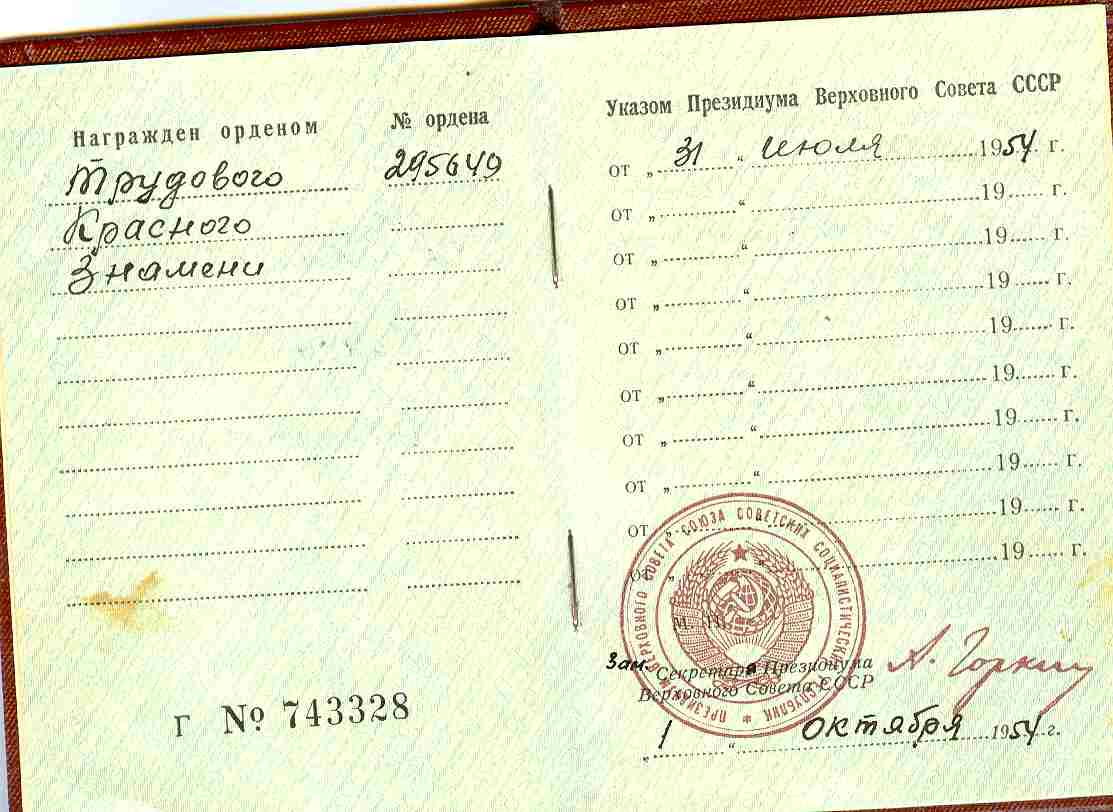 Награжден орденом
№ ордена
Трудового
295649
Красного
Знамени
Г № 743328
Указом Президиума Верховного Совета СССР
от „ 31 “ июля 1954 г.
от „ “ 19 г.
от „ “ 19 г.
от „ “ 19 г.
от „ “ 19 г.
от „ “ 19 г.
от „ “ 19 г.
от „ “ 19 г.
от „ “ 19 г.
от „ “ 19 г.
ПРЕЗИДИУМ ВЕРХОВНОГО СОВЕТА СОЮЗА СОВЕТСКИХ СОЦИАЛИСТИЧЕСКИХ РЕСПУБЛИК
М. П.
Зам. Секретаря Президиума
Верховного Совета СССР
А. Горкин
„ 1 “ октября 1954 г.